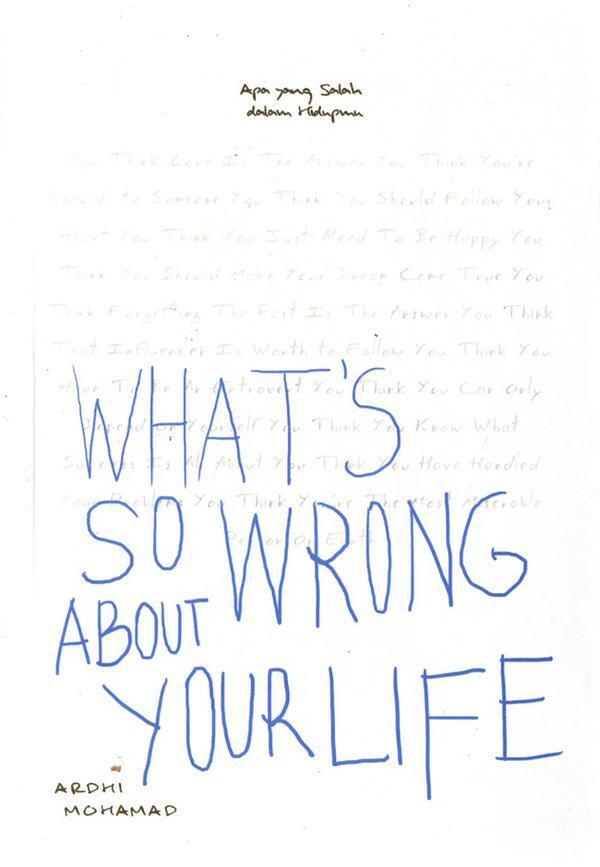 Apa yang Salah
dalam Hidupmu
You Think Love Is The Answer You Think You're
Special to Someone You Think You Should Follow Your
Heart You Think You Just Need To Be Happy You
Think You Should Make Your Dream Come True You
Think Forgetting The Past Is The Answer You Think
That Influencer Is Worth to Follow You Think You
Have To Be An Extrovert You Think You Can Only
Depend On Yourself You Think You Know What
Success Is All About You Think You Have Handled
Your Problems You Think You're The Most Miserable
Person On Earth
WHAT'S
SO WRONG
ABOUT
YOUR LIFE
ARDHI
MOHAMAD